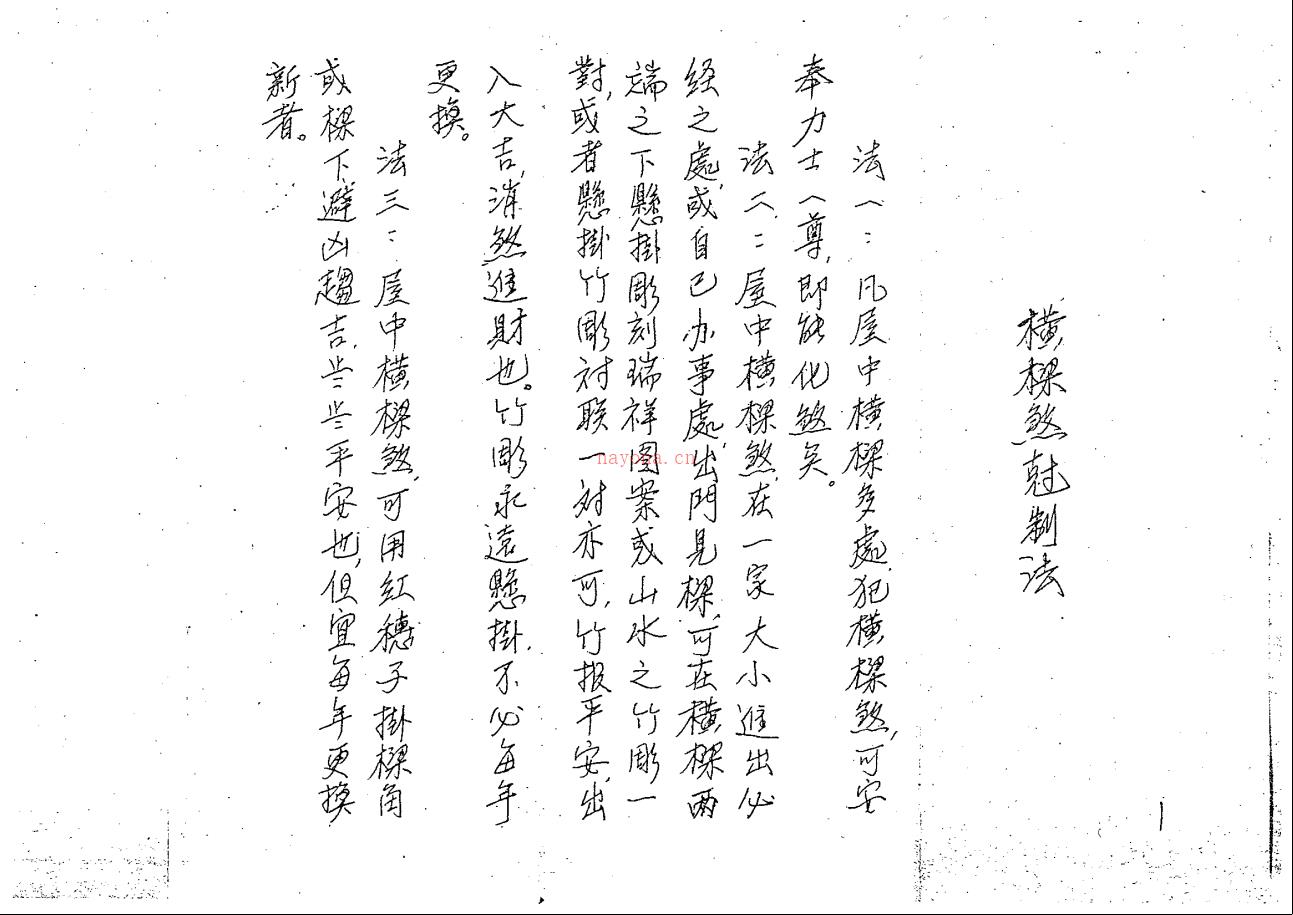 橫樑煞尅制法
法一：凡屋中橫樑多處，犯橫樑煞，可安
奉力士一尊，即能化煞矣。
法二：屋中橫樑煞，在一家大小進出必
经之處，或自己办事處，出門見樑，可在橫樑兩
端之下懸掛彫刻瑞祥图案或山水之竹彫一
對，或者懸掛竹彫对联一对亦可，竹报平安，出
入大吉，消煞進財也。竹彫永遠懸掛，不必每年
更換。
法三：屋中橫樑煞，可用紅穗子掛樑角
或樑下，避凶趨吉，岁岁平安也，但宜每年更換
新者。
nayona.cn
1